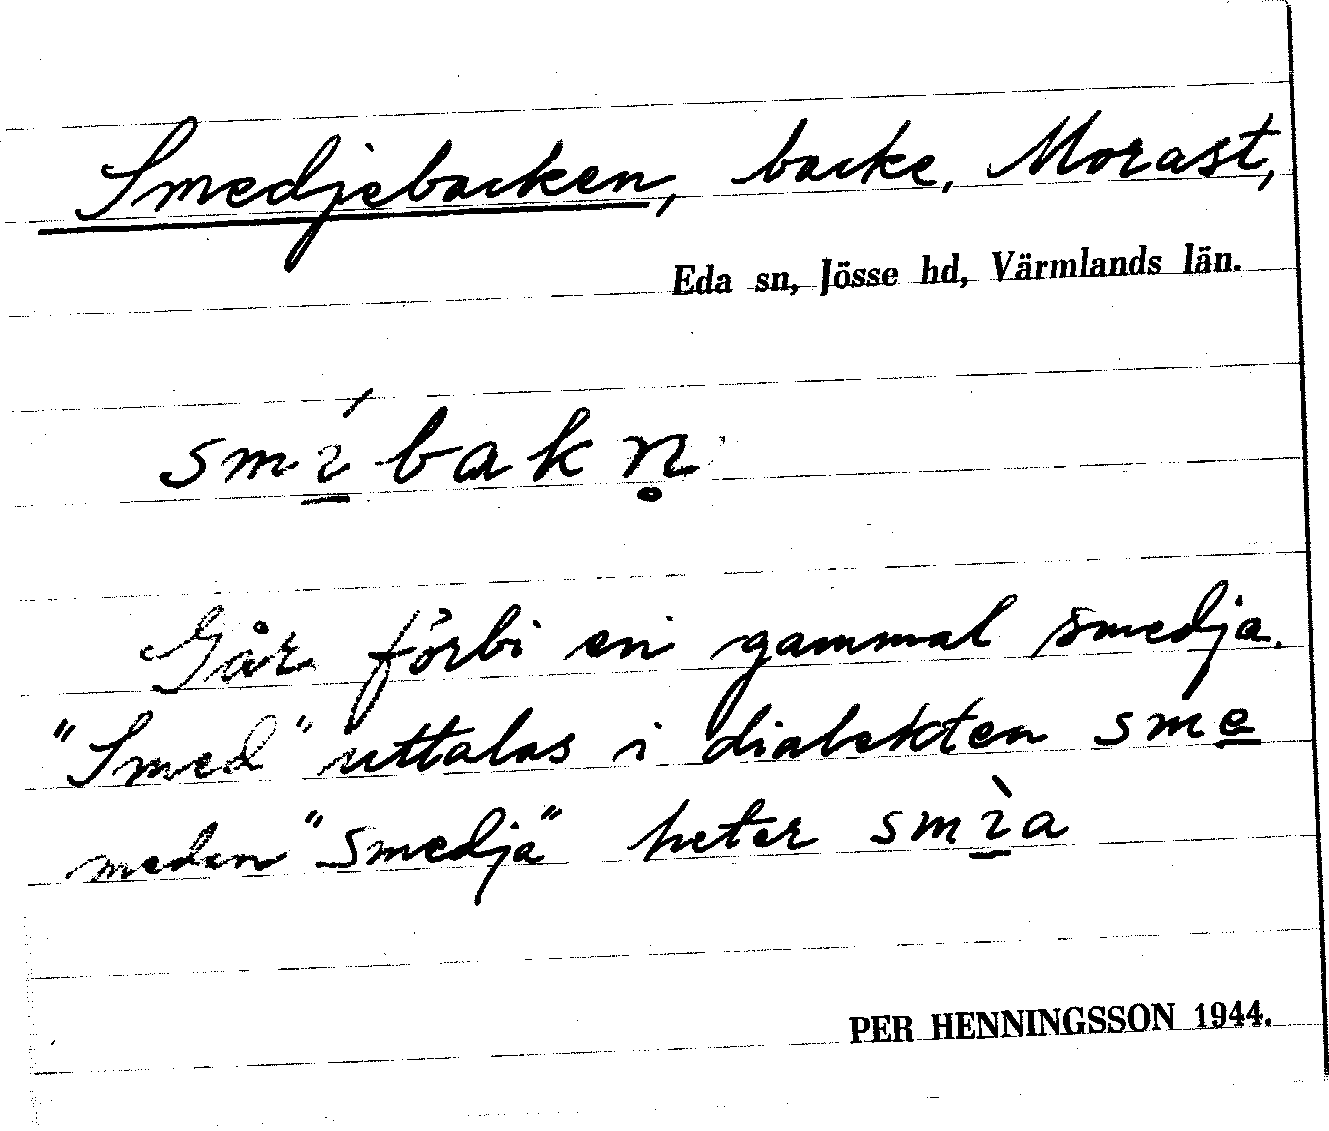 Smedjebacken, backe, Morast,
Eda sn, Jösse hd, Värmlands län.
smí̱bakn̥
Går förbi en gammal smedja.
"Smed" uttalas i dialekten sme̱
meden "smedja" heter smì̱a
PER HENNINGSSON 1944.